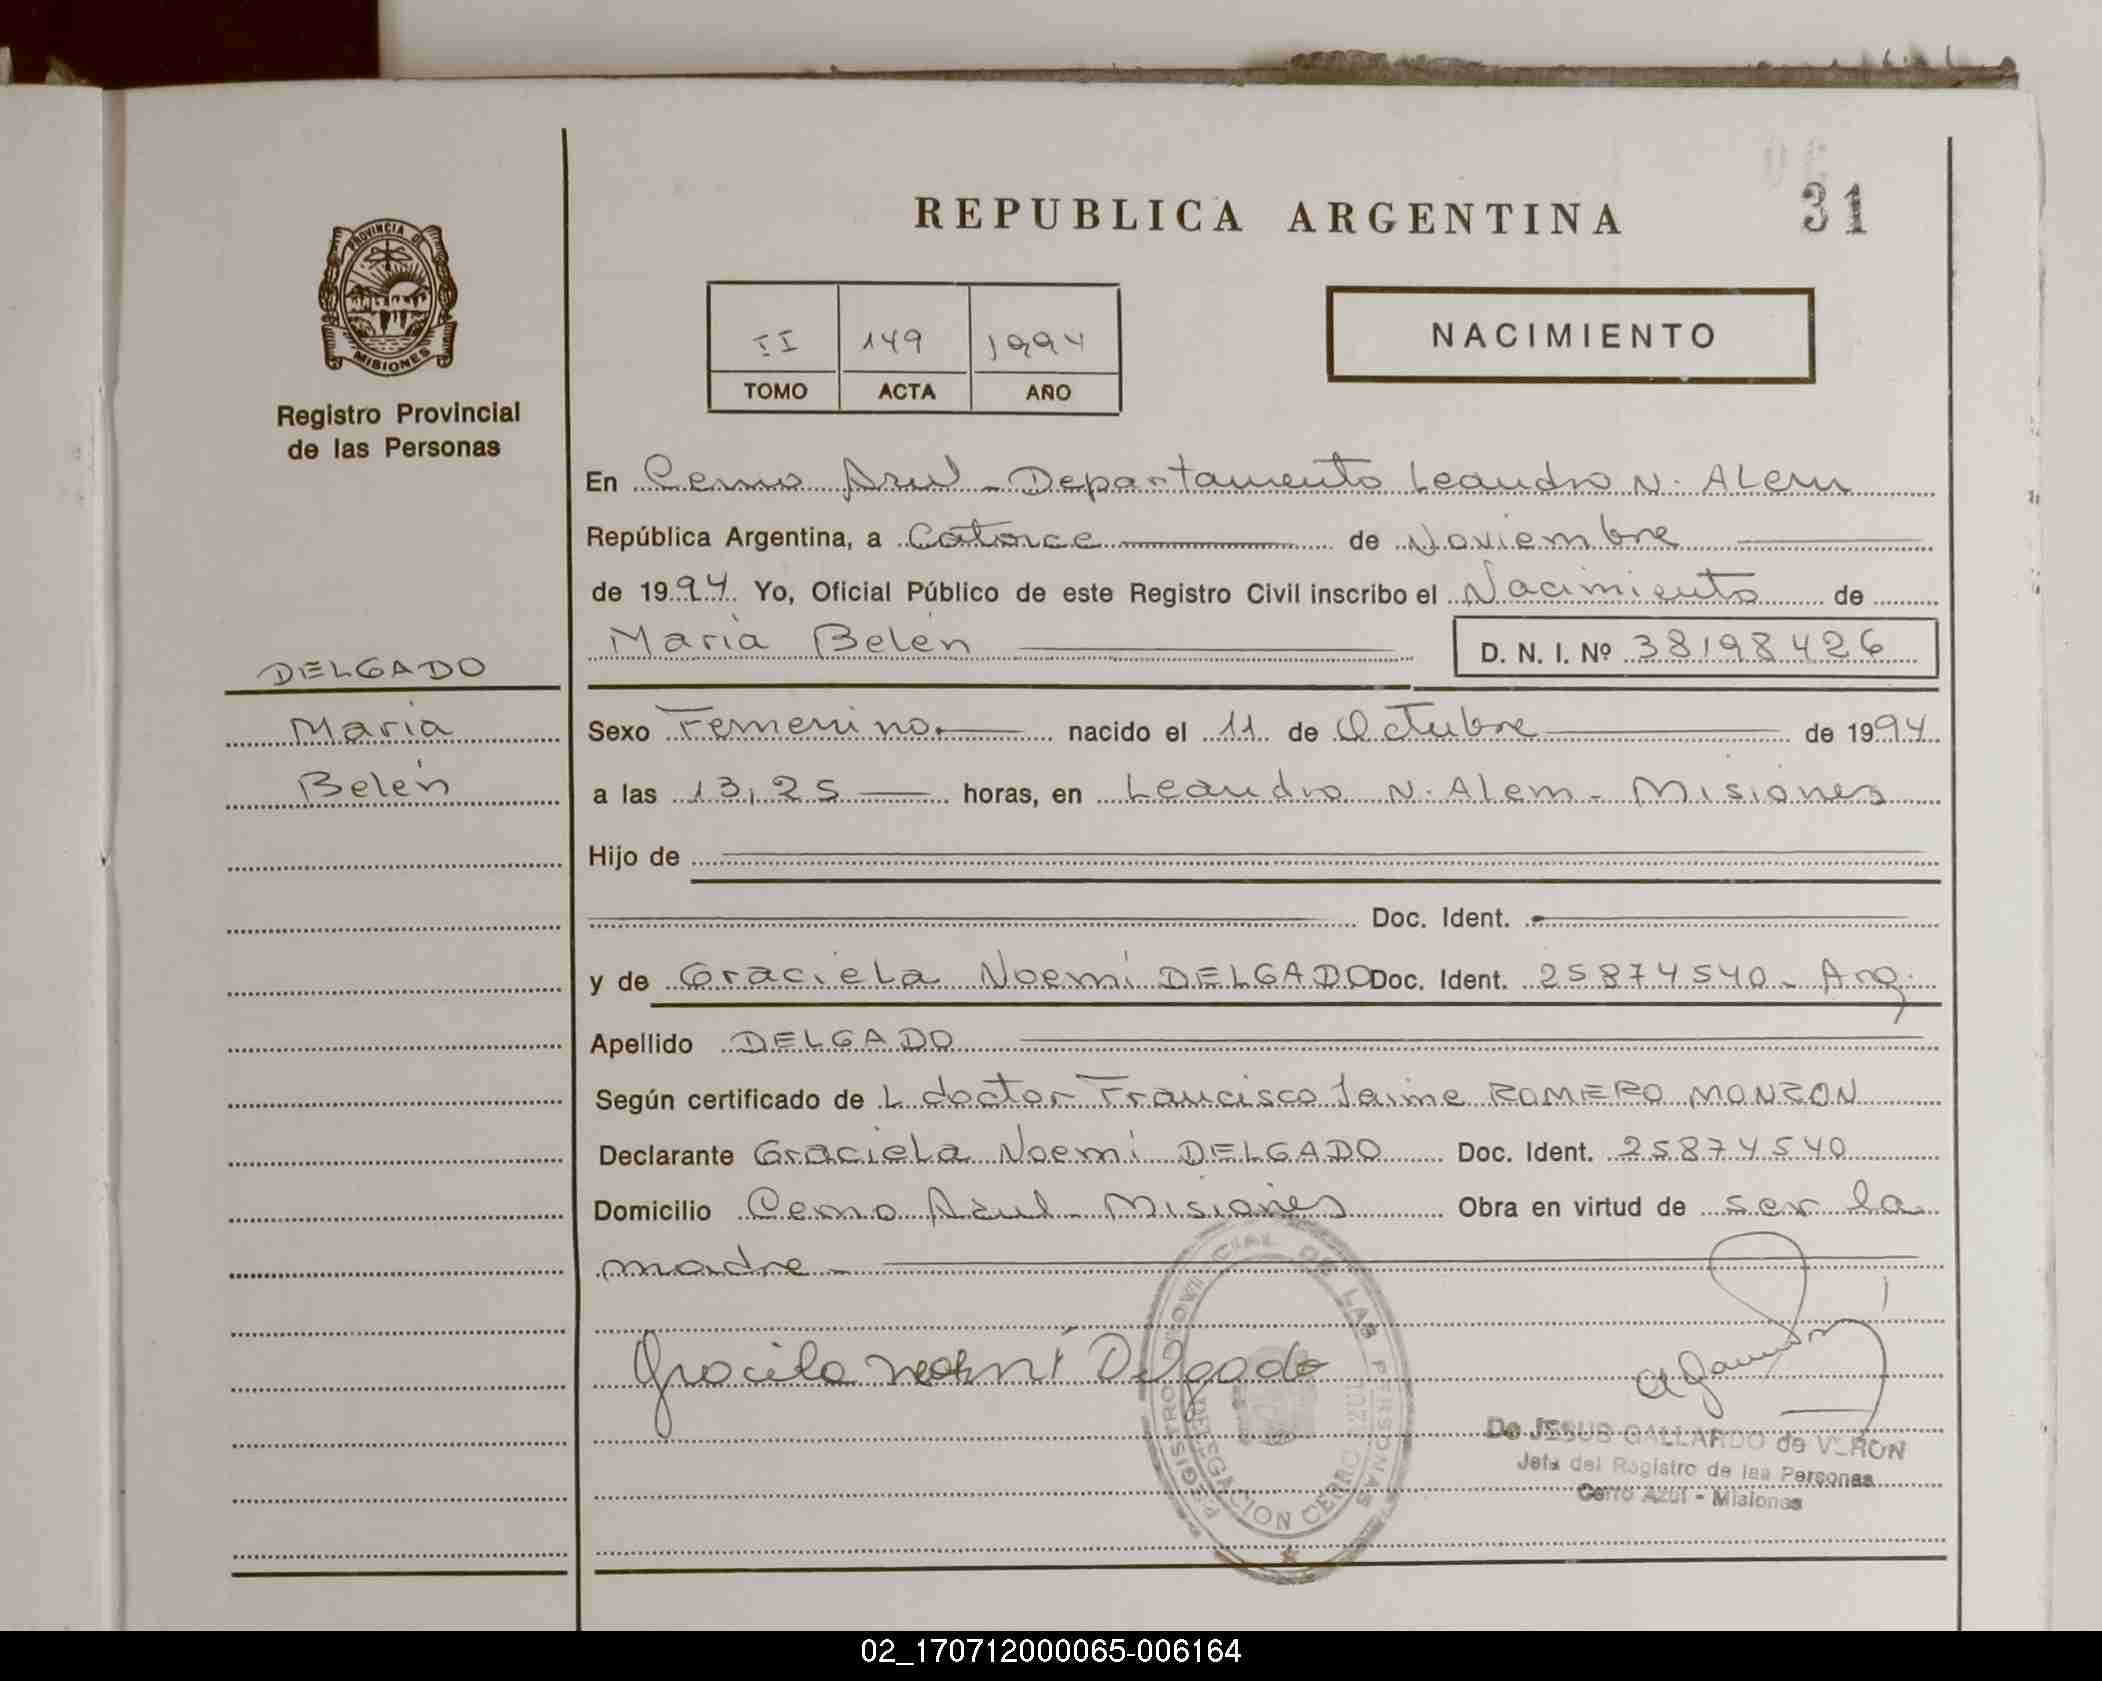 31
REPUBLICA ARGENTINA
PROVINCIA DE
MISIONES
Registro Provincial
de las Personas
II 149 1994
TOMO ACTA AÑO
NACIMIENTO
En Cerro Azul - Departamento Leandro N. ALem
República Argentina, a Catorce de Noviembre
de 1994 Yo, Oficial Público de este Registro Civil inscribo el Nacimiento de
María Belén D. N. I. Nº 38198426
DELGADO
María
Belén
Sexo Femenino nacido el 11 de Octubre de 1994
a las 13,25 horas, en Leandro N. Alem - Misiones
Hijo de
Doc. Ident.
y de GracieLa Noemí DELGADO Doc. Ident. 25874540 - Arg.
Apellido DELGADO
Según certificado de L doctor Francisco Jaime ROMERO MONZON
Declarante GracieLa Noemí DELGADO Doc. Ident. 25874540
Domicilio Cerro Azul - Misiones Obra en virtud de ser la
madre -
Graciela Noemí Delgado
REGISTRO PROVINCIAL DE LAS PERSONAS
DELEGACION CERRO AZUL
De JESUS GALLARDO de VERON
Jefa del Registro de las Personas
Cerro Azul - Misiones
02_170712000065-006164